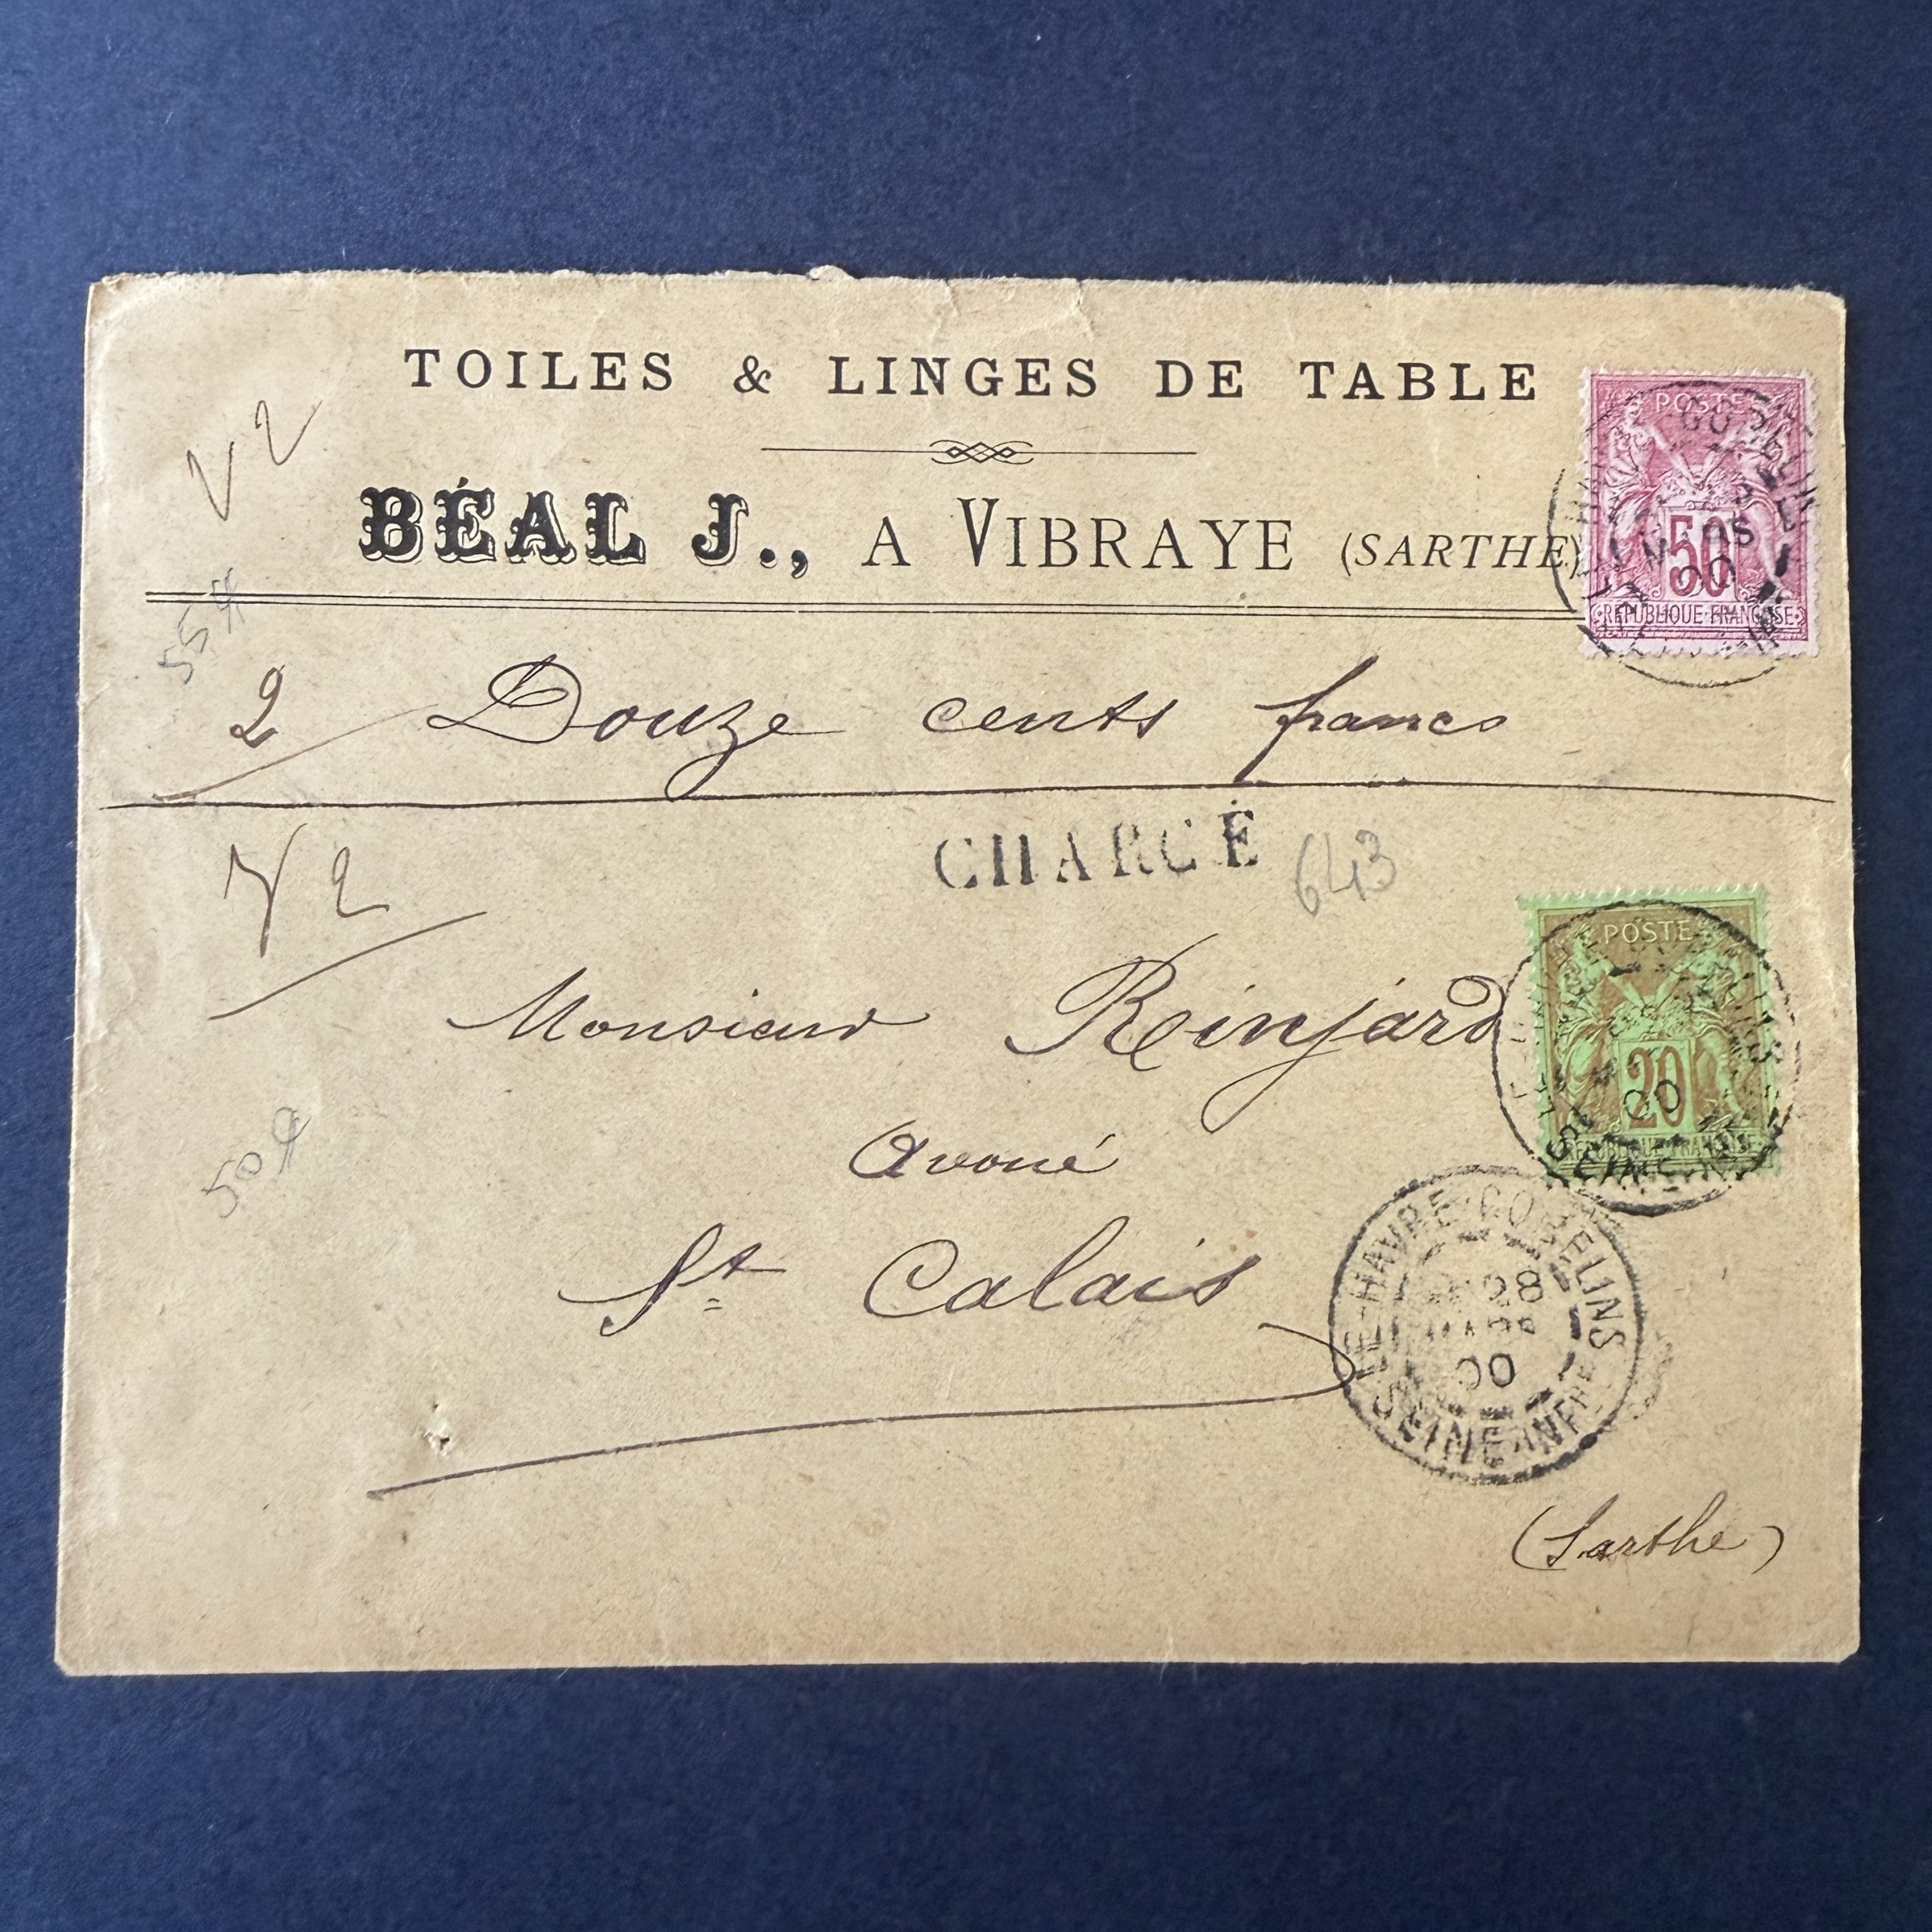 TOILES & LINGES DE TABLE
BÉAL J., A VIBRAYE (SARTHE)
POSTE
50
REPUBLIQUE FRANÇAISE
55
2 Douze cents francs
CHARGÉ 643
Monsieur Reinjard
Avoué
POSTE
20
REPUBLIQUE FRANÇAISE
50
St Calais
LE HAVRE-GOBELINS
28
MARS
00
SEINE INFRE
(Sarthe)